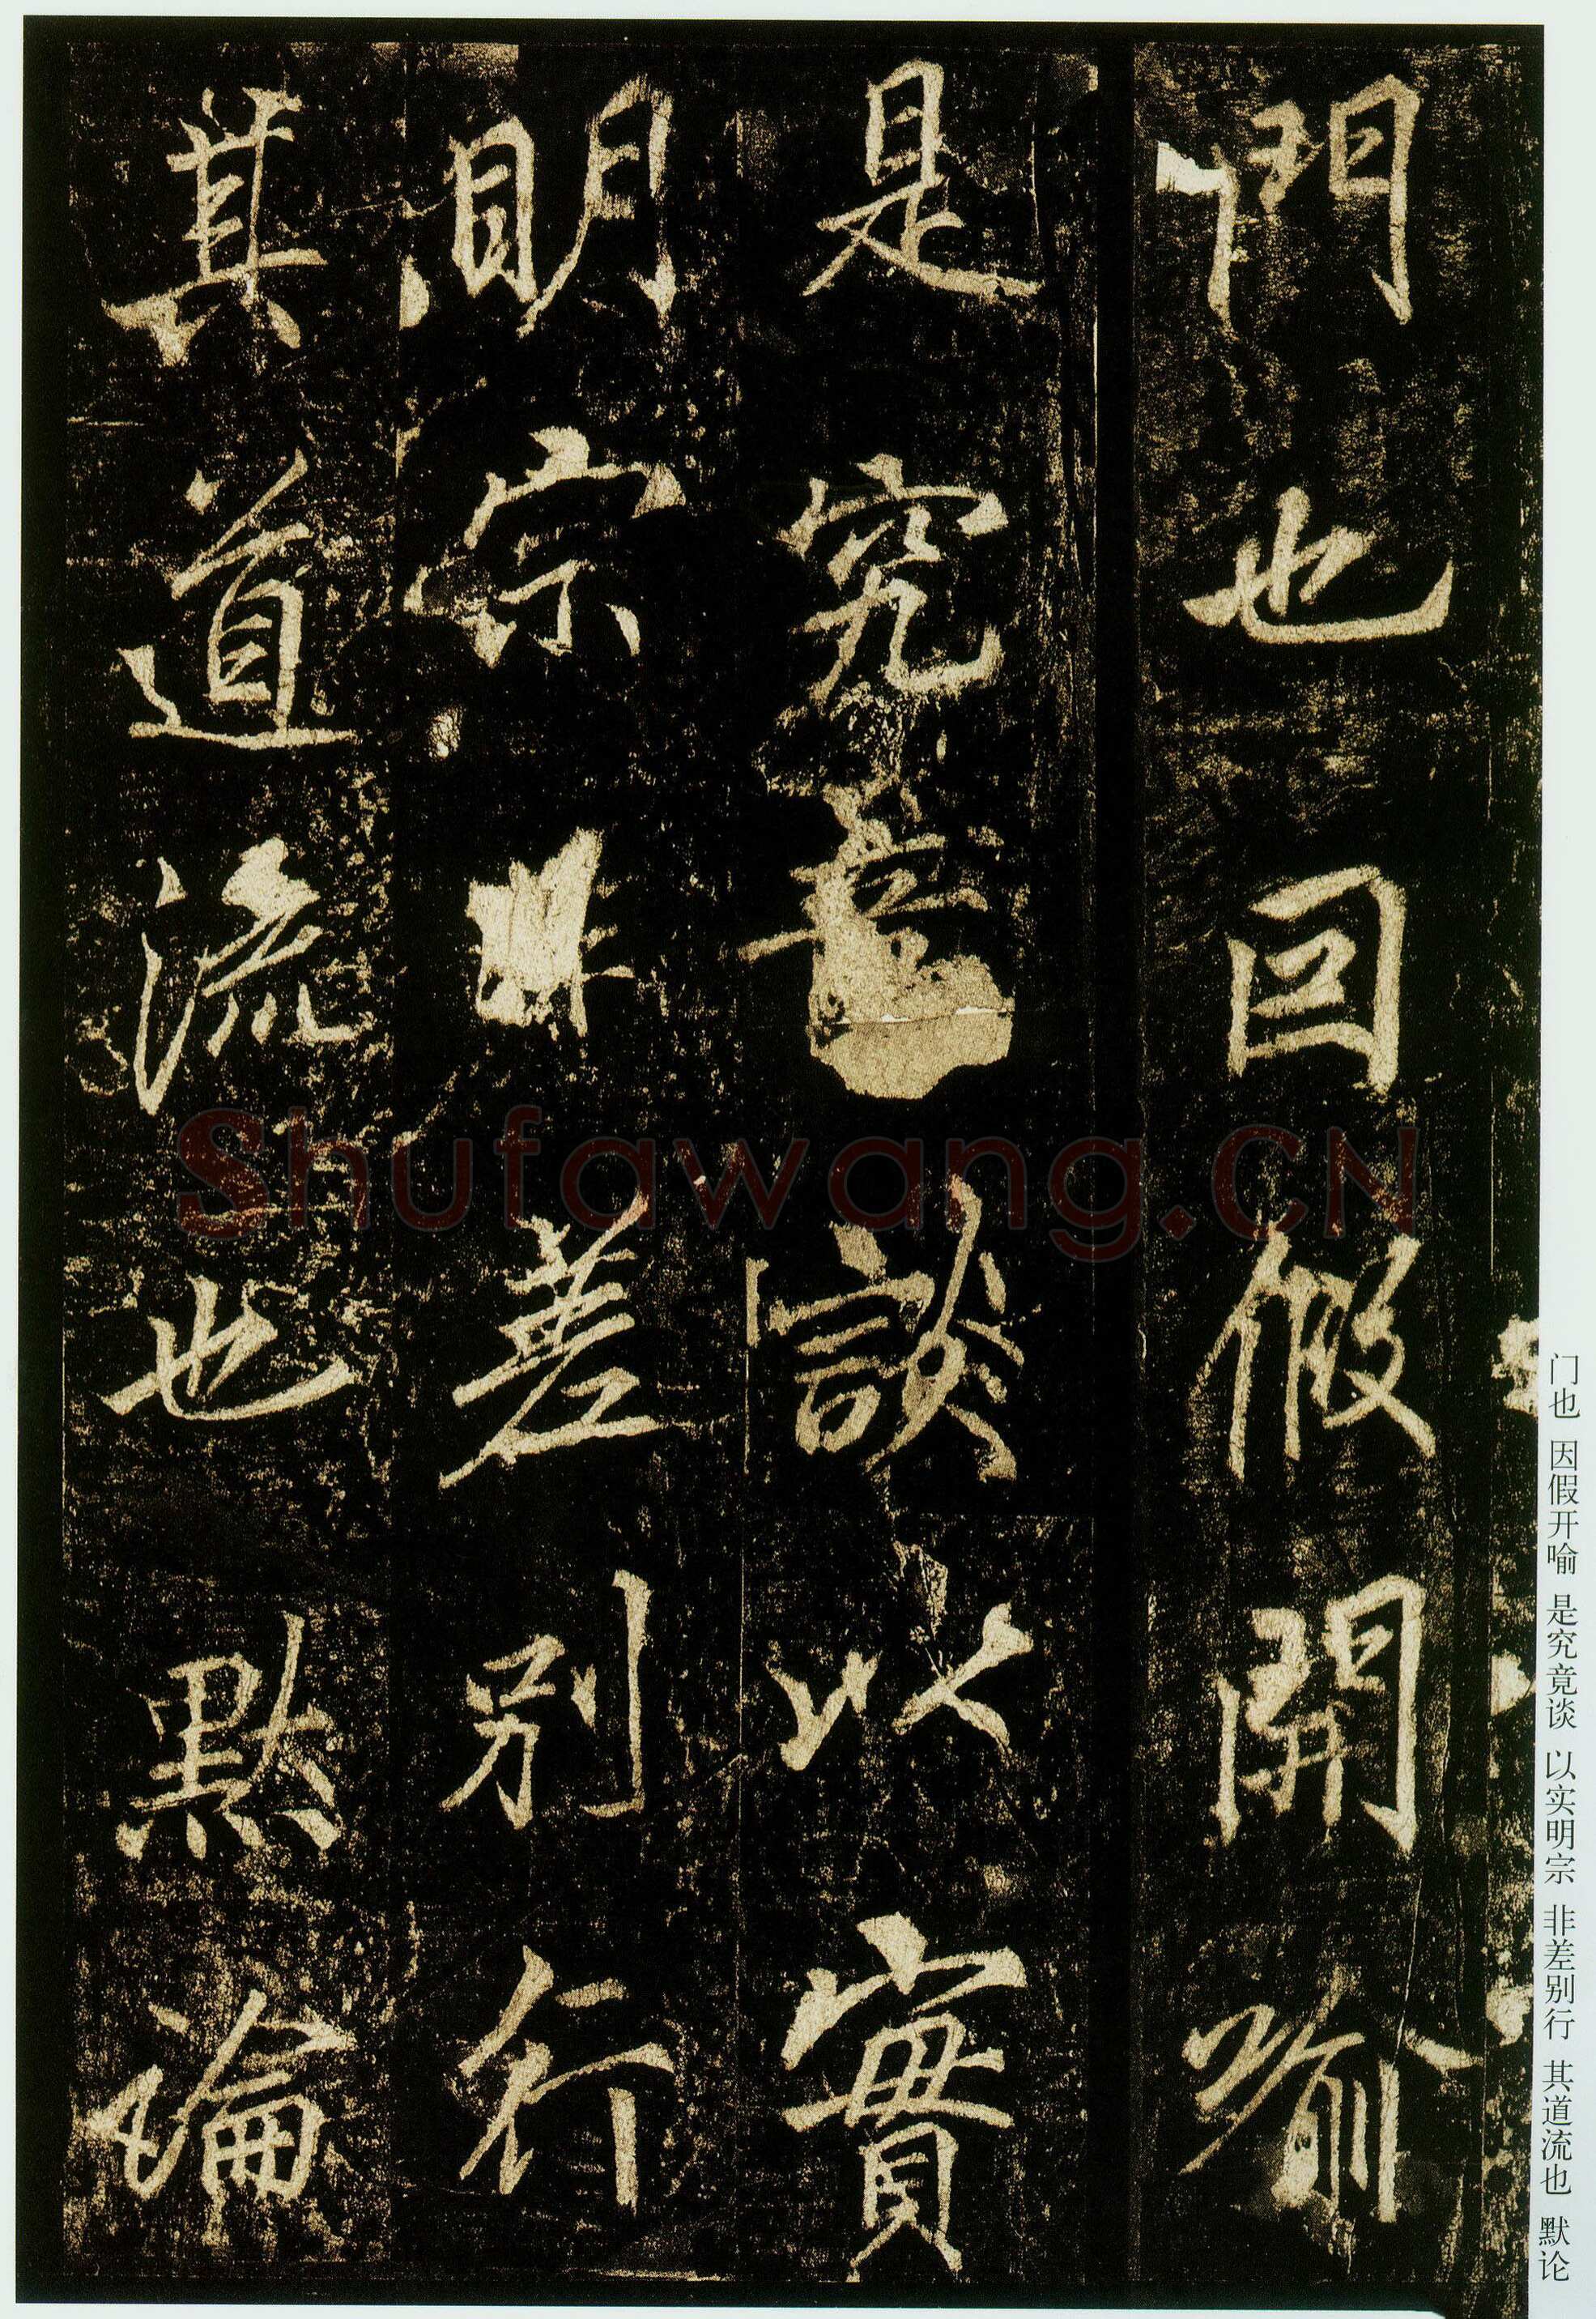 門也因假開喻
是究竟談以實
明宗非差別行
其道流也默論
门也 因假开喻 是究竟谈 以实明宗 非差别行 其道流也 默论
Shufawang.CN